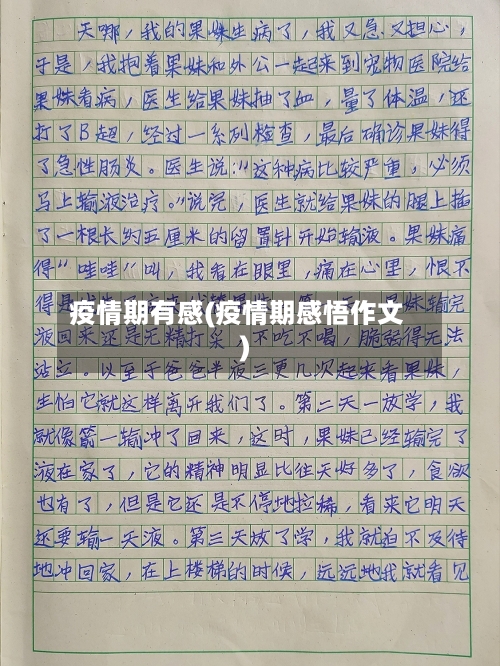 天哪，我的果妹生病了，我又急又担心，
于是，我抱着果妹和外公一起来到宠物医院给
果妹看病，医生给果妹抽了血，量了体温，还
打了B超，经过一系列检查，最后确诊果妹得
了急性肠炎。医生说："这种病比较严重，必须
马上输液治疗。"说完，医生就给果妹的腿上插
了一根长约五厘米的留置针开始输液。果妹痛
得"哇哇"叫，我看在眼里，痛在心里，恨不
得
疫情期有感(疫情期感悟作文
)
妹输完
液回来还是无精打采，不吃不喝，脆弱得无法
站立。以至于爸爸半夜三更几次起来看果妹，
生怕它就这样离开我们了。第二天一放学，我
就像箭一输冲了回来，这时，果妹已经输完了
液在家了，它的精神明显比昨天好多了，食欲
也有了，但是它还是不停地拉稀，看来它明天
还要输一天液。第三天放了学，我就迫不及待
地冲回家，在上楼梯的时候，远远地我就看见